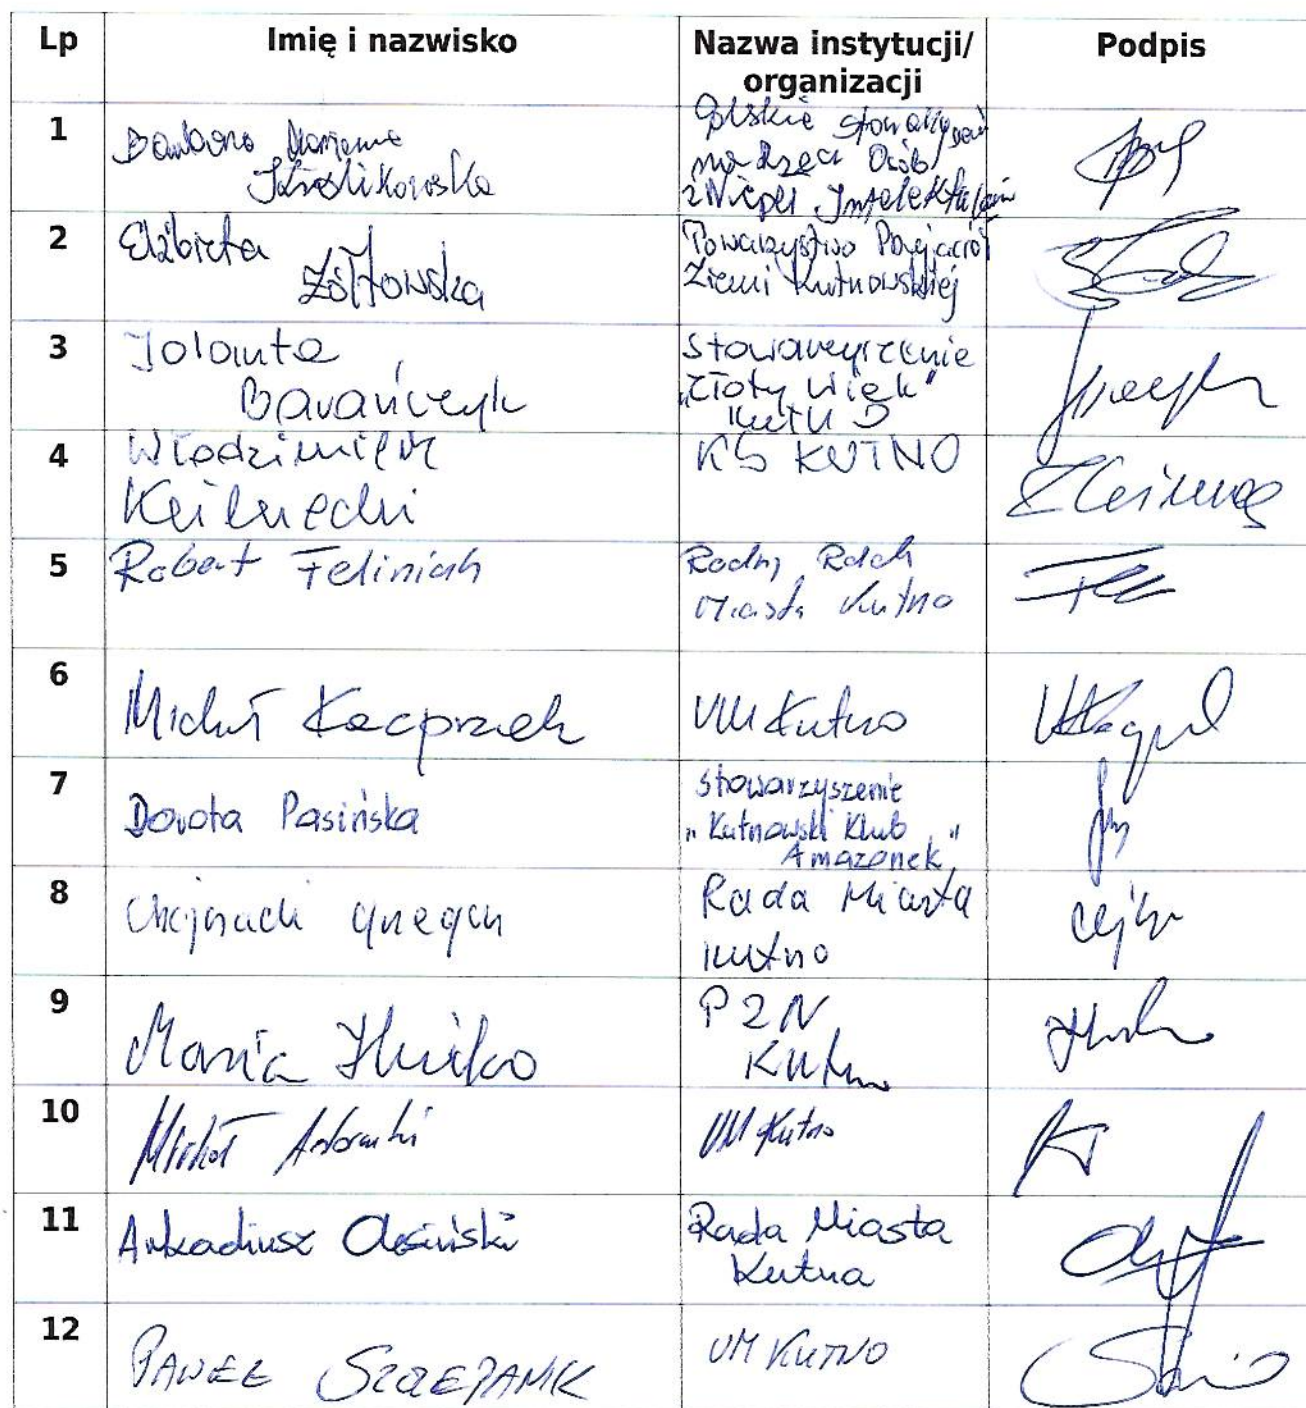 Lp Imię i nazwisko Nazwa instytucji/ Podpis
organizacji
1 Barbara Marianna Polskie Stowarzyszenie
Królikowska na Rzecz Osób
z Niepeł Intelektualną
2 Elżbieta Towarzystwo Przyjaciół
Żółtowska Ziemi Kutnowskiej
3 Jolanta Stowarzyszenie
Barańczyk „Złoty Wiek"
Kutno
4 Włodzimierz KS KUTNO
5 Robert Feliniak Radny Rady
Miasta Kutno
6 Michał Kacprzak UM Kutno
7 Dorota Pasińska Stowarzyszenie
„Kutnowski Klub
Amazonek"
8 Chojnacki Grzegorz Rada Miasta
Kutno
9 Maria PZN
Kutno
10 Michał UM Kutno
11 Arkadiusz Olesiński Rada Miasta
Kutna
12 PAWEŁ SZCZEPANIK UM KUTNO